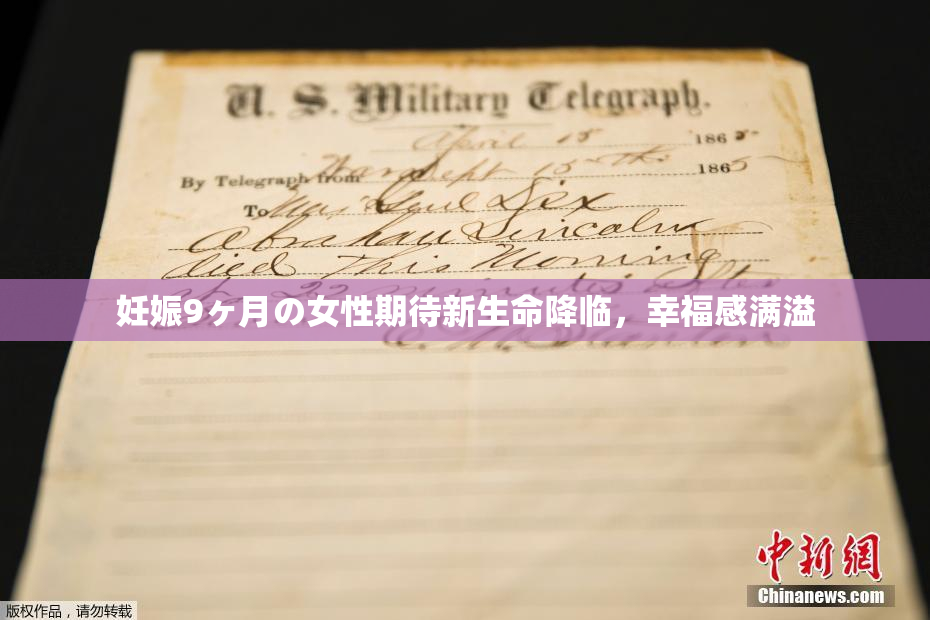 U. S. Military Telegraph.
April 15 1865
By Telegraph from War Dept 15th 1865
To Maj Genl Dix
Abraham Lincoln
died This Morning
22 minutes after
妊娠9ヶ月の女性期待新生命降临，幸福感满溢
E. M. Stanton
中新网
Chinanews.com
版权作品，请勿转载